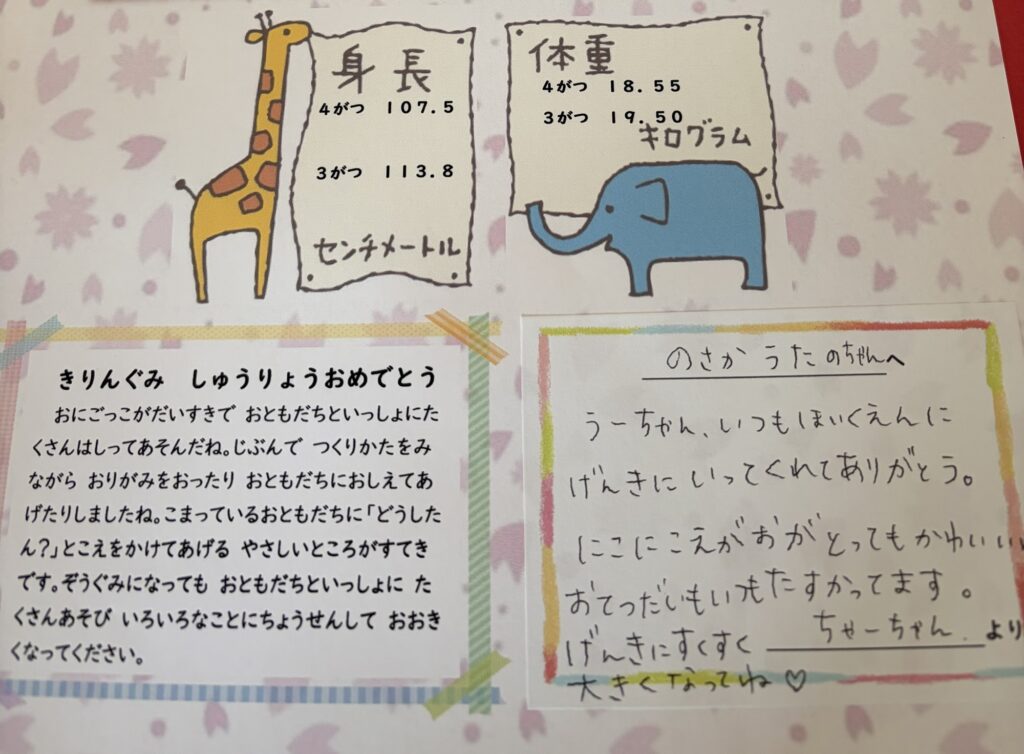 身長
4がつ　107.5
3がつ　113.8
センチメートル
体重
4がつ　18.55
3がつ　19.50
キログラム
きりんぐみ　しゅうりょうおめでとう
おにごっこがだいすきで おともだちといっしょにた
くさんはしってあそんだね。じぶんで つくりかたをみ
ながら おりがみをおったり おともだちにおしえてあ
げたりしましたね。こまっているおともだちに「どうした
ん?」とこえをかけてあげる やさしいところがすてき
です。ぞうぐみになっても おともだちといっしょに た
くさんあそび いろいろなことにちょうせんして おおき
くなってください。
のさか うたのちゃんへ
うーちゃん、いつもほいくえんに
げんきにいってくれてありがとう。
にこにこえがおがとってもかわいい
おてつだいもいつもたすかってます。
げんきにすくすく
大きくなってね♡
ちゃーちゃん. より